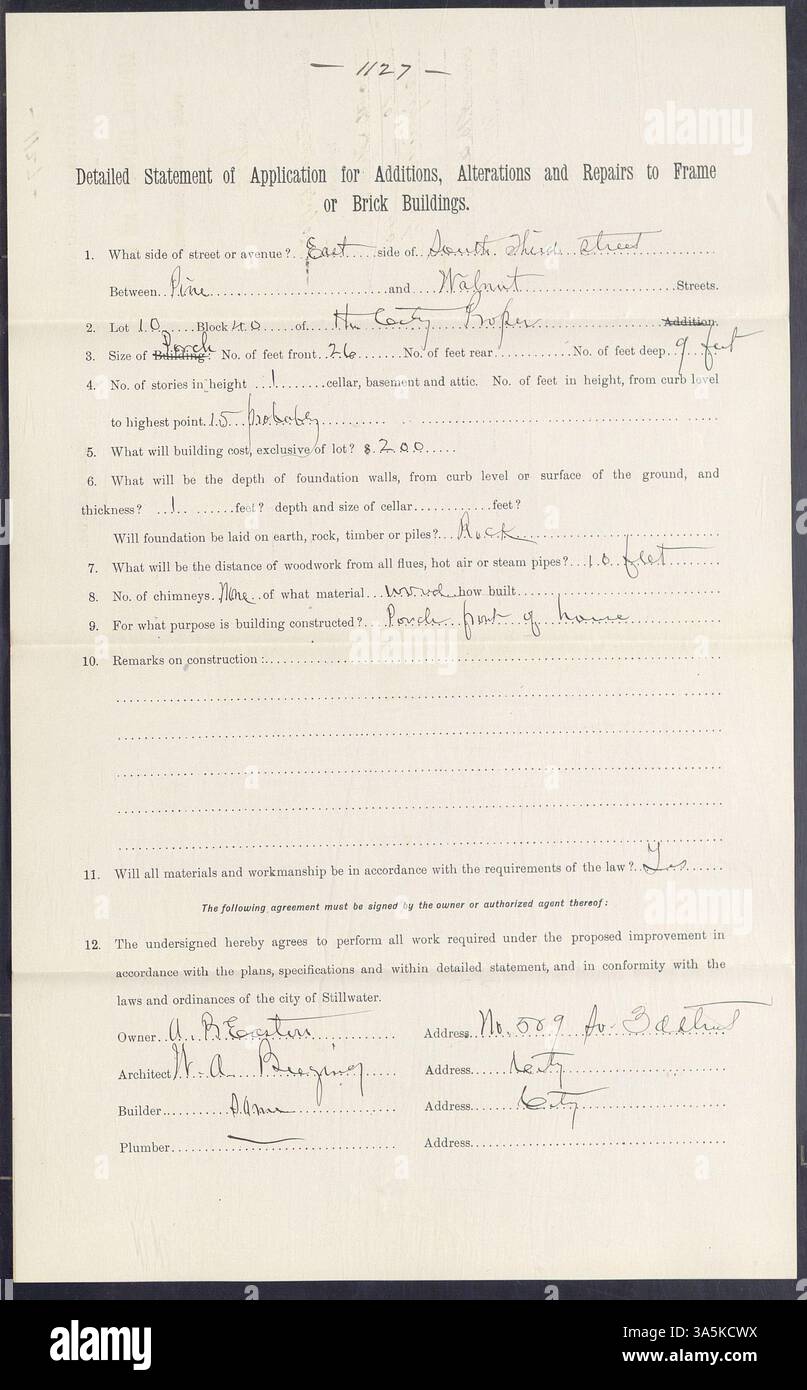 — 1127 —
Detailed Statement of Application for Additions, Alterations and Repairs to Frame
or Brick Buildings.
1. What side of street or avenue? East side of South Third Street
Between Pine and Walnut Streets.
2. Lot 10 Block 40 of The City Proper Addition.
Porch
3. Size of Building? No. of feet front 26 No. of feet rear No. of feet deep 9 feet
4. No. of stories in height 1 cellar, basement and attic. No. of feet in height, from curb level
to highest point. 15 probably
5. What will building cost, exclusive of lot? $ 200
6. What will be the depth of foundation walls, from curb level or surface of the ground, and
thickness? 1 feet? depth and size of cellar feet?
Will foundation be laid on earth, rock, timber or piles? Rock
7. What will be the distance of woodwork from all flues, hot air or steam pipes? 10 feet
8. No. of chimneys None of what material wood how built
9. For what purpose is building constructed? Porch front of house
10. Remarks on construction:
11. Will all materials and workmanship be in accordance with the requirements of the law? Yes
The following agreement must be signed by the owner or authorized agent thereof:
12. The undersigned hereby agrees to perform all work required under the proposed improvement in
accordance with the plans, specifications and within detailed statement, and in conformity with the
laws and ordinances of the city of Stillwater.
Owner A. B Easton Address No. 509 So 3d Street
Architect W. A. Address City
Builder Same Address City
Plumber — Address
alamy
Image ID: 3A5KCWX
www.alamy.com